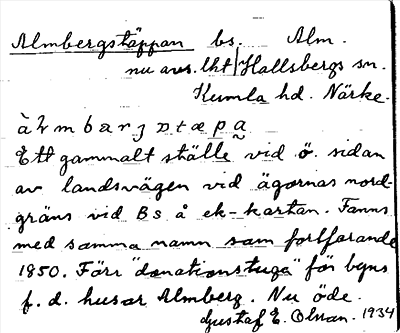 Almbergstäppan bs. Alm.
nu avs. lht Hallsbergs sn.
Kumla hd. Närke.
Ett gammalt ställe vid ö. sidan
av landsvägen vid ägornas nord-
gräns vid Bs å ek-kartan. Fanns
med samma namn som fortfarande
1850. Förr "donationstuga" för byns
f. d. husar Almberg. Nu öde.
Gustaf E. Olsson. 1934